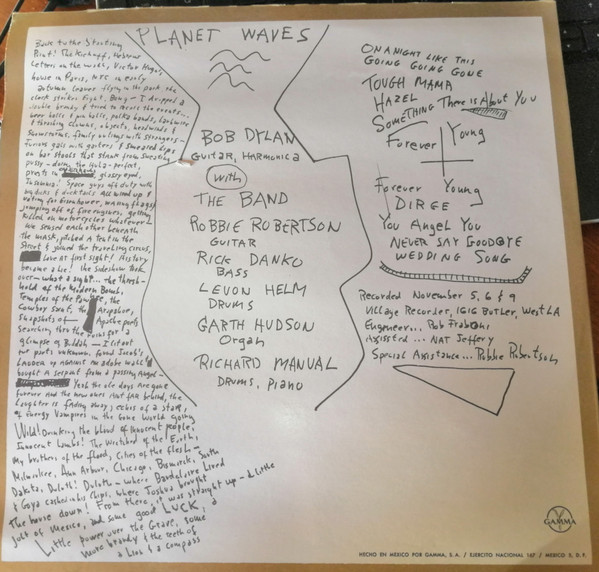 PLANET WAVES
Back to the Starting
Point! The Kickoff, Hebrew
Letters on the wall, Victor Hugo's
house in Paris, NYC in early
autumn leaves flying in the park, the
clock strikes Eight. Bong - I dropped a
double brandy & tried to recall the events...
beer halls & pin balls, polka bands, barbwire
& thrashing clowns, objects, headwinds &
Snowstorms, family outings with strangers -
Furious gals with garters & smeared lips
on bar stools that stank from sweating
pussy - doing the Hula - perfect,
priests in glassy eyed,
Insomnia! Space guys off duty with
big dicks & ducktails All wired up &
voting for Eisenhower, waving flags &
jumping off of fire engines, getting
killed on motorcycles whatever -
We sensed each other beneath
the mask, pitched a tent in the
Street & joined the traveling circus,
Love at first sight! History
became a lie! the sideshow took
over - what a sight... the thresh-
hold of the Modern Bomb,
Temples of the Pawnee, the
Cowboy Saint, the Arapahoe,
Snapshots of Apache poets
searching thru the ruins for a
glimpse of Buddah - I lit out
for parts unknown, found Jacob's
Ladder up against an adobe wall &
bought a serpent from a passing Angel -
Yeah the ole days are gone
forever And the new ones Aint far behind, the
Laughter is fading away, echos of a star,
of Energy Vampires in the Gone World going
Wild! Drinking the blood of innocent people,
Innocent Lambs! The Wretched of the Earth,
My brothers of the flood, Cities of the flesh -
Milwaukee, Ann Arbor, Chicago, Bismarck, South
Dakota, Duluth! Duluth - where Baudelaire Lived
& Goya cashed in his Chips, where Joshua brought
The house down! From there, it was straight up - a Little
jolt of Mexico, and some good LUCK, a
Little power over the Grave, some
more brandy & the teeth of
a Lion & a compass
BOB DYLAN
GUITAR, HARMONICA
with
THE BAND
ROBBIE ROBERTSON
GUITAR
RICK DANKO
BASS
LEVON HELM
DRUMS
GARTH HUDSON
Organ
RICHARD MANUAL
DRUMS, PIANO
ON A NIGHT LIKE THIS
GOING GOING GONE
TOUGH MAMA
HAZEL
SOMETHING There is About You
Forever Young
Forever Young
DIRGE
You Angel You
NEVER SAY GOODBYE
WEDDING SONG
Recorded November 5, 6 & 9
Village Recorder, 1616 Butler, West LA
Engineer... Rob Fraboni
Assisted... NAT Jeffery
Special Assistance... Robbie Robertson
GAMMA
HECHO EN MEXICO POR GAMMA, S.A. / EJERCITO NACIONAL 167 / MEXICO 5, D.F.